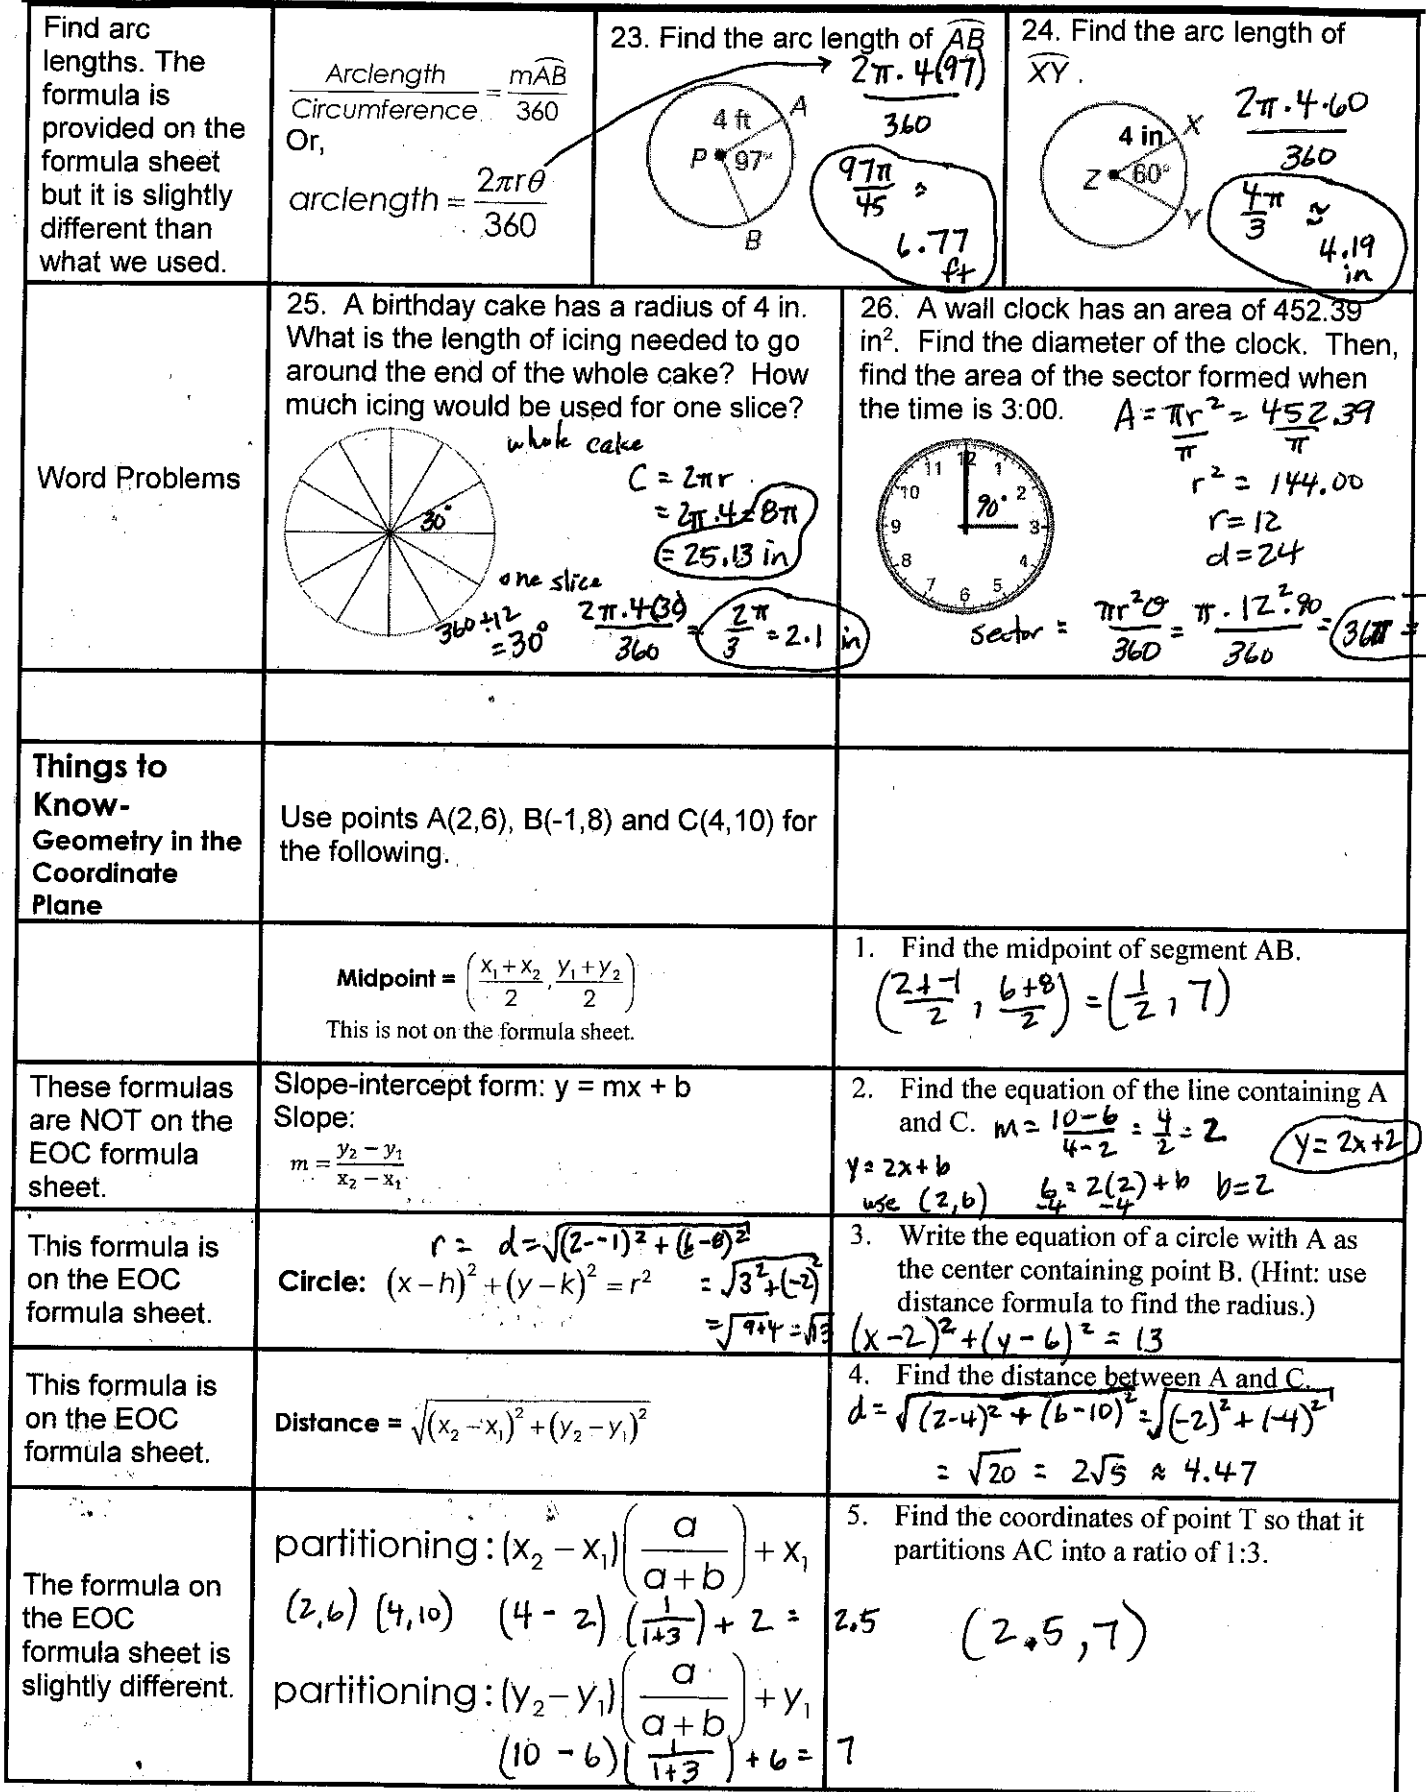 Find arc
lengths. The
formula is
provided on the
formula sheet
but it is slightly
different than
what we used.
Arclength / Circumference = mAB / 360
Or,
arclength = 2πrθ / 360
23. Find the arc length of AB
2π·4(97) / 360
4 ft
A
P
97°
B
97π / 45 ≈
6.77
ft
24. Find the arc length of
XY.
2π·4·60 / 360
4 in
X
Z
60°
Y
4π / 3 ≈
4.19
in
Word Problems
25. A birthday cake has a radius of 4 in.
What is the length of icing needed to go
around the end of the whole cake? How
much icing would be used for one slice?
whole cake
C = 2πr
= 2π·4 = 8π
= 25.13 in
30°
one slice
360÷12
= 30°
2π·4(30) / 360 = 2π / 3 = 2.1 in
26. A wall clock has an area of 452.39
in². Find the diameter of the clock. Then,
find the area of the sector formed when
the time is 3:00.
A = πr² = 452.39
π π
r² = 144.00
r = 12
d = 24
12 1 2 3 4 5 6 7 8 9 10 11
90°
sector = πr²θ / 360 = π·12²·90 / 360 = 36π =
Things to
Know-
Geometry in the
Coordinate
Plane
Use points A(2,6), B(-1,8) and C(4,10) for
the following.
Midpoint = ((x₁+x₂)/2, (y₁+y₂)/2)
This is not on the formula sheet.
1. Find the midpoint of segment AB.
((2+-1)/2, (6+8)/2) = (1/2, 7)
These formulas
are NOT on the
EOC formula
sheet.
Slope-intercept form: y = mx + b
Slope:
m = (y₂ − y₁)/(x₂ − x₁)
2. Find the equation of the line containing A
and C. m = (10-6)/(4-2) = 4/2 = 2
y = 2x+2
y = 2x+b
use (2,6) 6 = 2(2)+b b=2
-4 -4
This formula is
on the EOC
formula sheet.
r = d = √((2--1)² + (6-8)²)
Circle: (x−h)² + (y−k)² = r²
= √(3²+(-2)²)
= √(9+4) = √13
3. Write the equation of a circle with A as
the center containing point B. (Hint: use
distance formula to find the radius.)
(x-2)² + (y-6)² = 13
This formula is
on the EOC
formula sheet.
Distance = √((x₂ − x₁)² + (y₂ − y₁)²)
4. Find the distance between A and C.
d = √((2-4)² + (6-10)²) = √((-2)² + (-4)²)
= √20 = 2√5 ≈ 4.47
The formula on
the EOC
formula sheet is
slightly different.
partitioning: (x₂ − x₁)(a/(a+b)) + x₁
(2,6) (4,10) (4-2)(1/(1+3)) + 2 = 2.5
partitioning: (y₂ − y₁)(a/(a+b)) + y₁
(10-6)(1/(1+3)) + 6 = 7
5. Find the coordinates of point T so that it
partitions AC into a ratio of 1:3.
(2.5, 7)